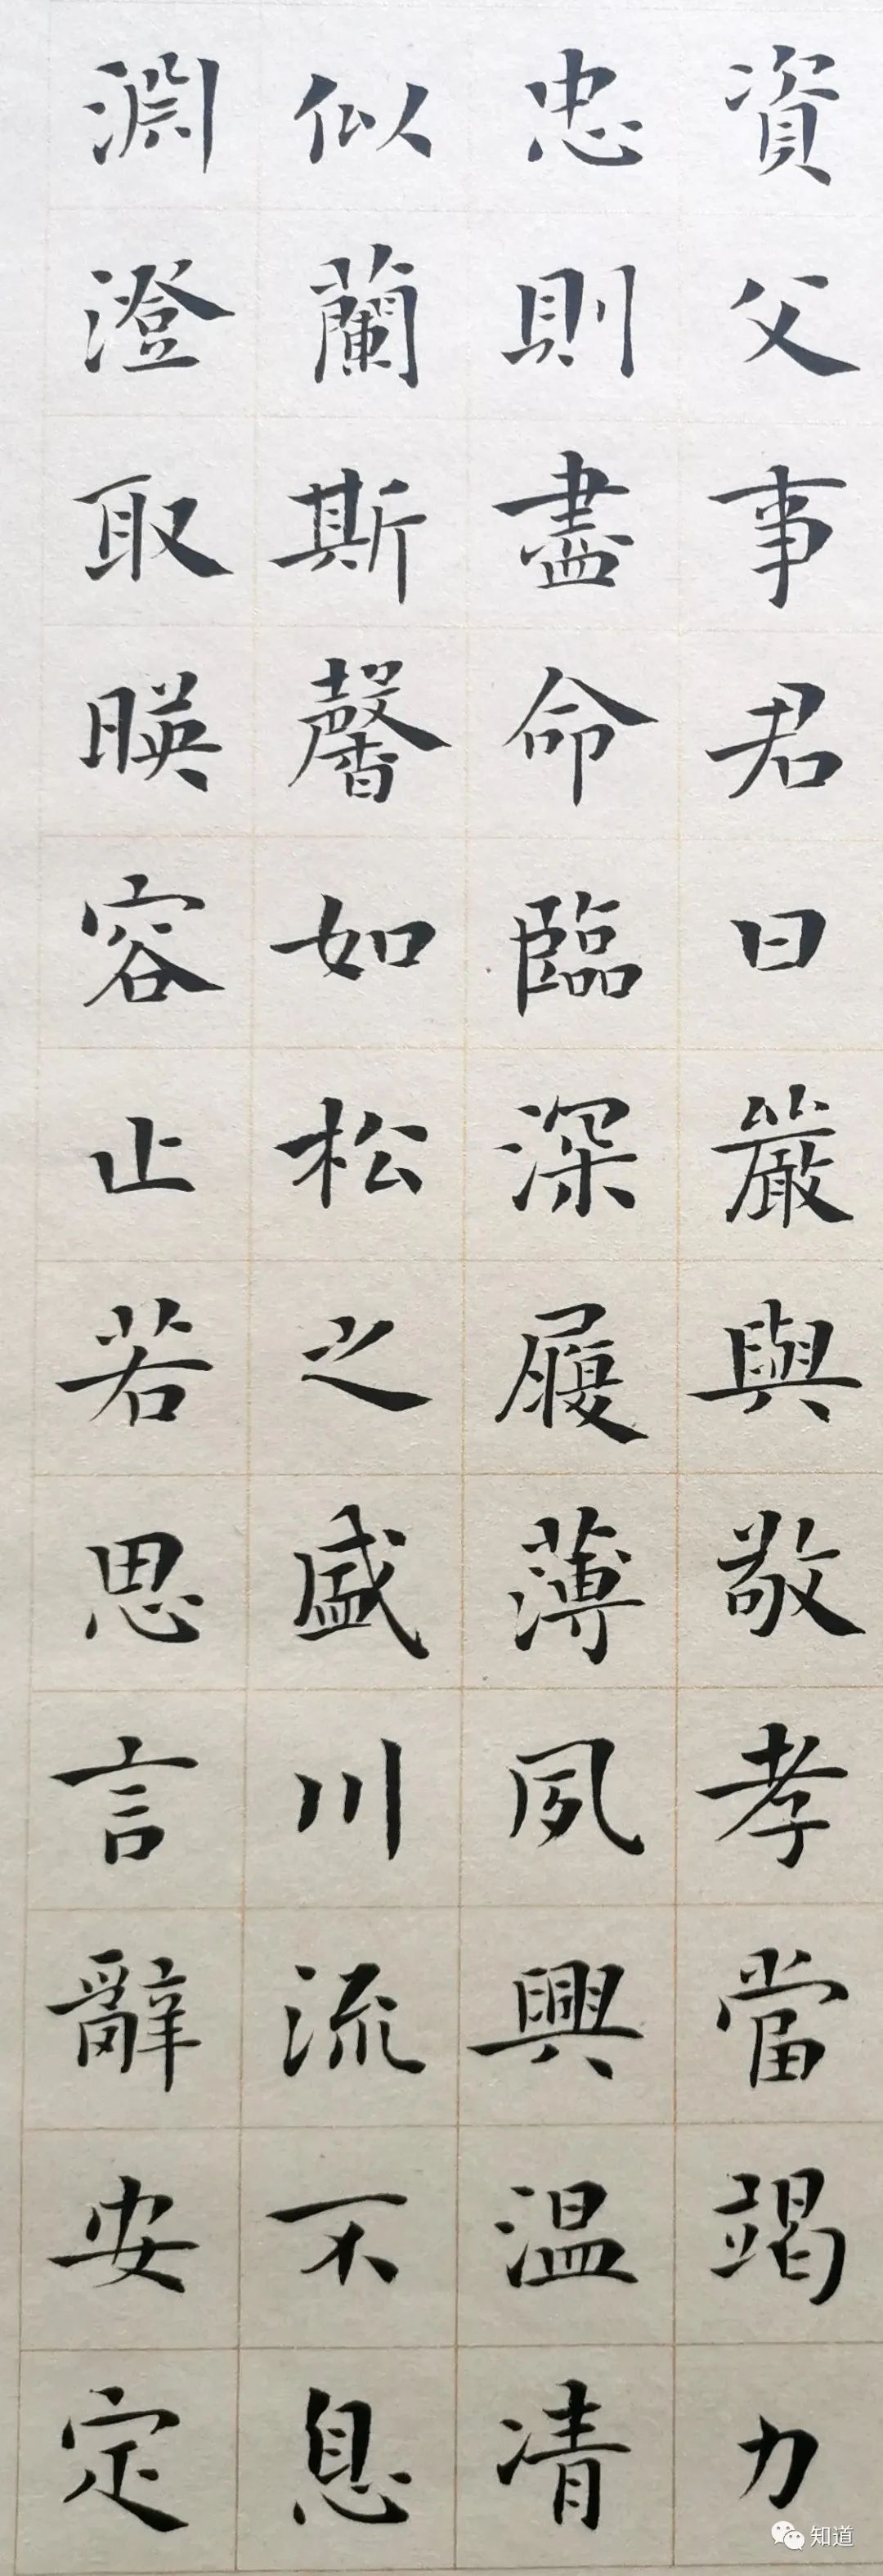 資父事君曰嚴與敬孝當竭力
忠則盡命臨深履薄夙興温凊
似蘭斯馨如松之盛川流不息
淵澄取暎容止若思言辭安定
知道